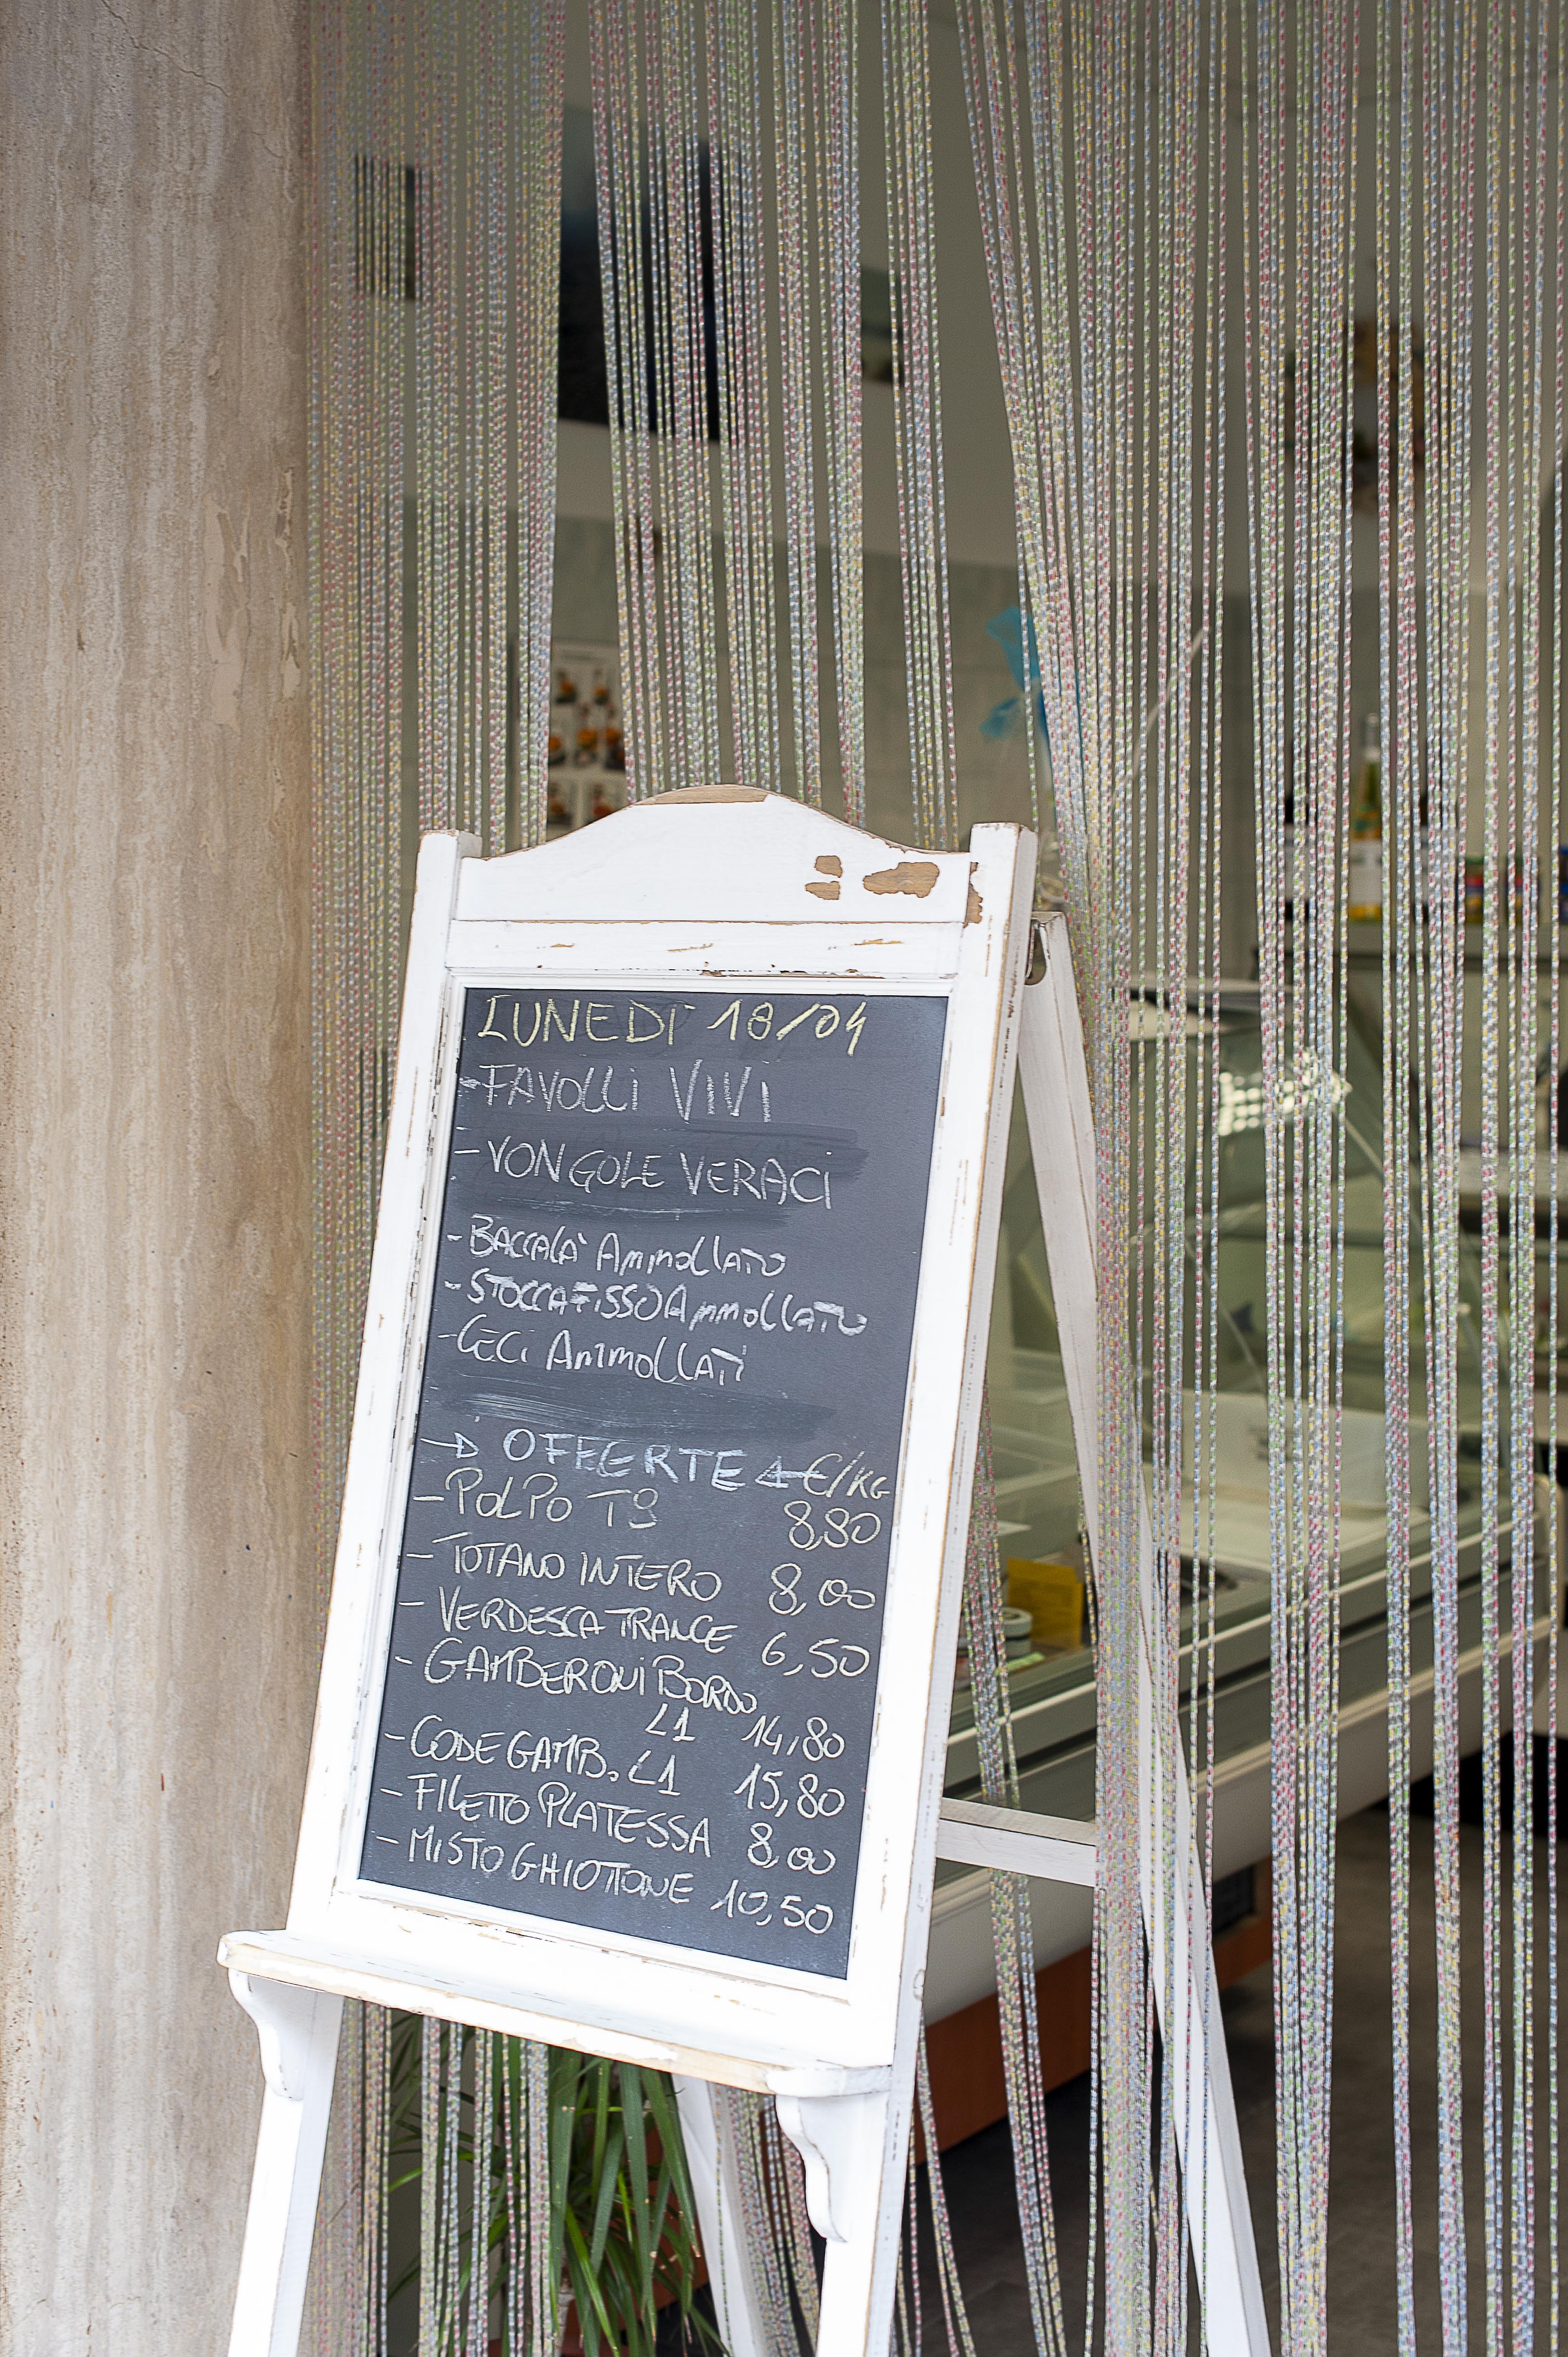 LUNEDI 18/04
-FAVOLLI VIVI
-VONGOLE VERACI
-BACCALA' AMMOLLATO
-STOCCAFISSO AMMOLLATO
-CECI AMMOLLATI
→ OFFERTE ← €/KG
-POLPO T8 8,80
-TOTANO INTERO 8,00
-VERDESCA TRANCE 6,50
-GAMBERONI BORDO
L1 14,80
-CODE GAMB. L1 15,80
-FILETTO PLATESSA 8,00
-MISTO GHIOTTONE 10,50